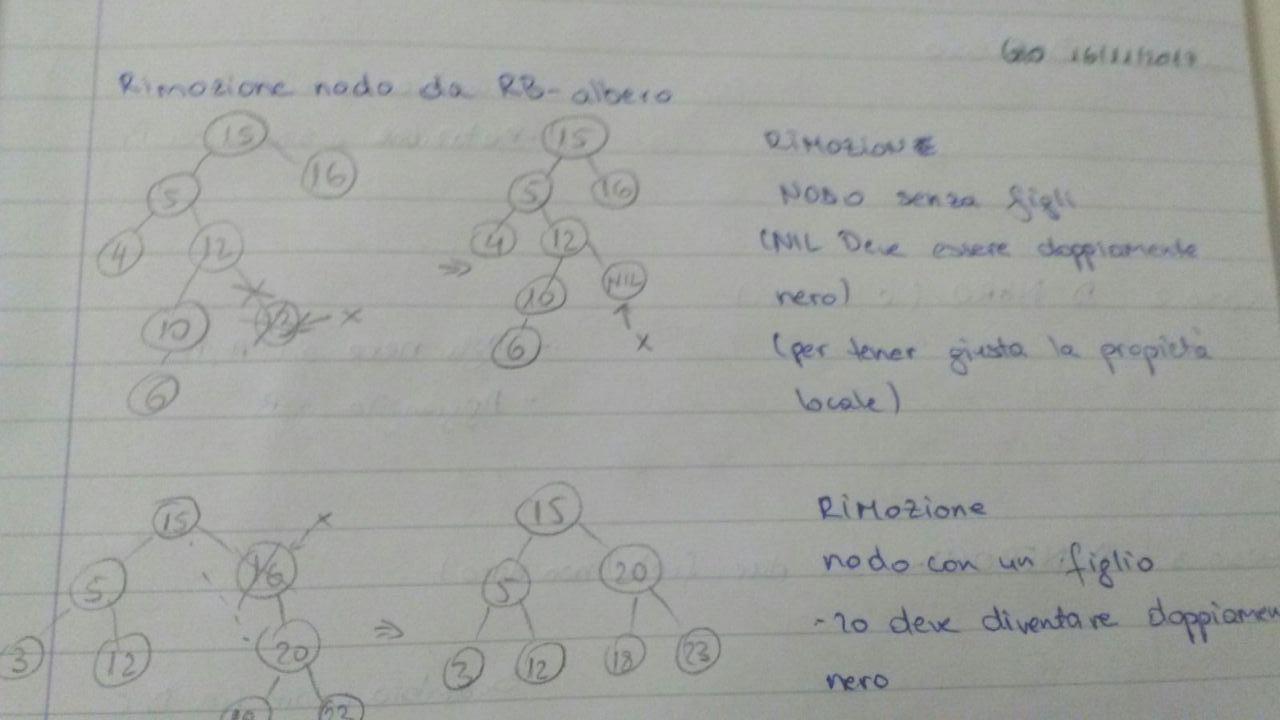 Gio 16/11/2017
Rimozione nodo da RB-albero
15
16
5
4
12
10
13
x
6
15
5
16
4
12
10
NIL
6
x
RIMOZIONE
NODO senza figli
(NIL Deve essere doppiamente
nero)
(per tener giusta la propietà
locale)
15
x
16
5
20
3
12
15
5
20
3
12
18
23
RIMOZIONE
nodo con un figlio
-20 deve diventare doppiamen
nero